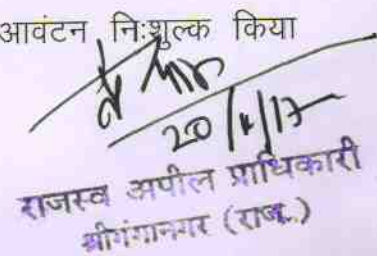 आवंटन निःशुल्क किया
राजस्व अपील प्राधिकारी
श्रीगंगानगर (राज.)